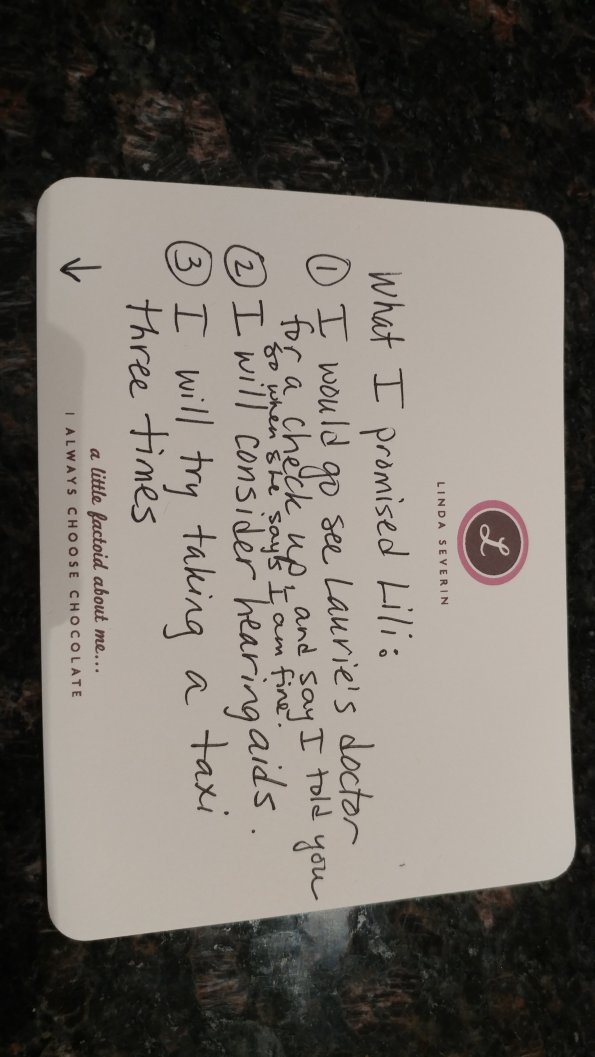 L
LINDA SEVERIN
What I promised Lili:
① I would go see Laurie's doctor
for a check up, and say I told you
so when she says I am fine.
② I will consider hearing aids.
③ I will try taking a taxi
three times
a little factoid about me...
I ALWAYS CHOOSE CHOCOLATE
↓